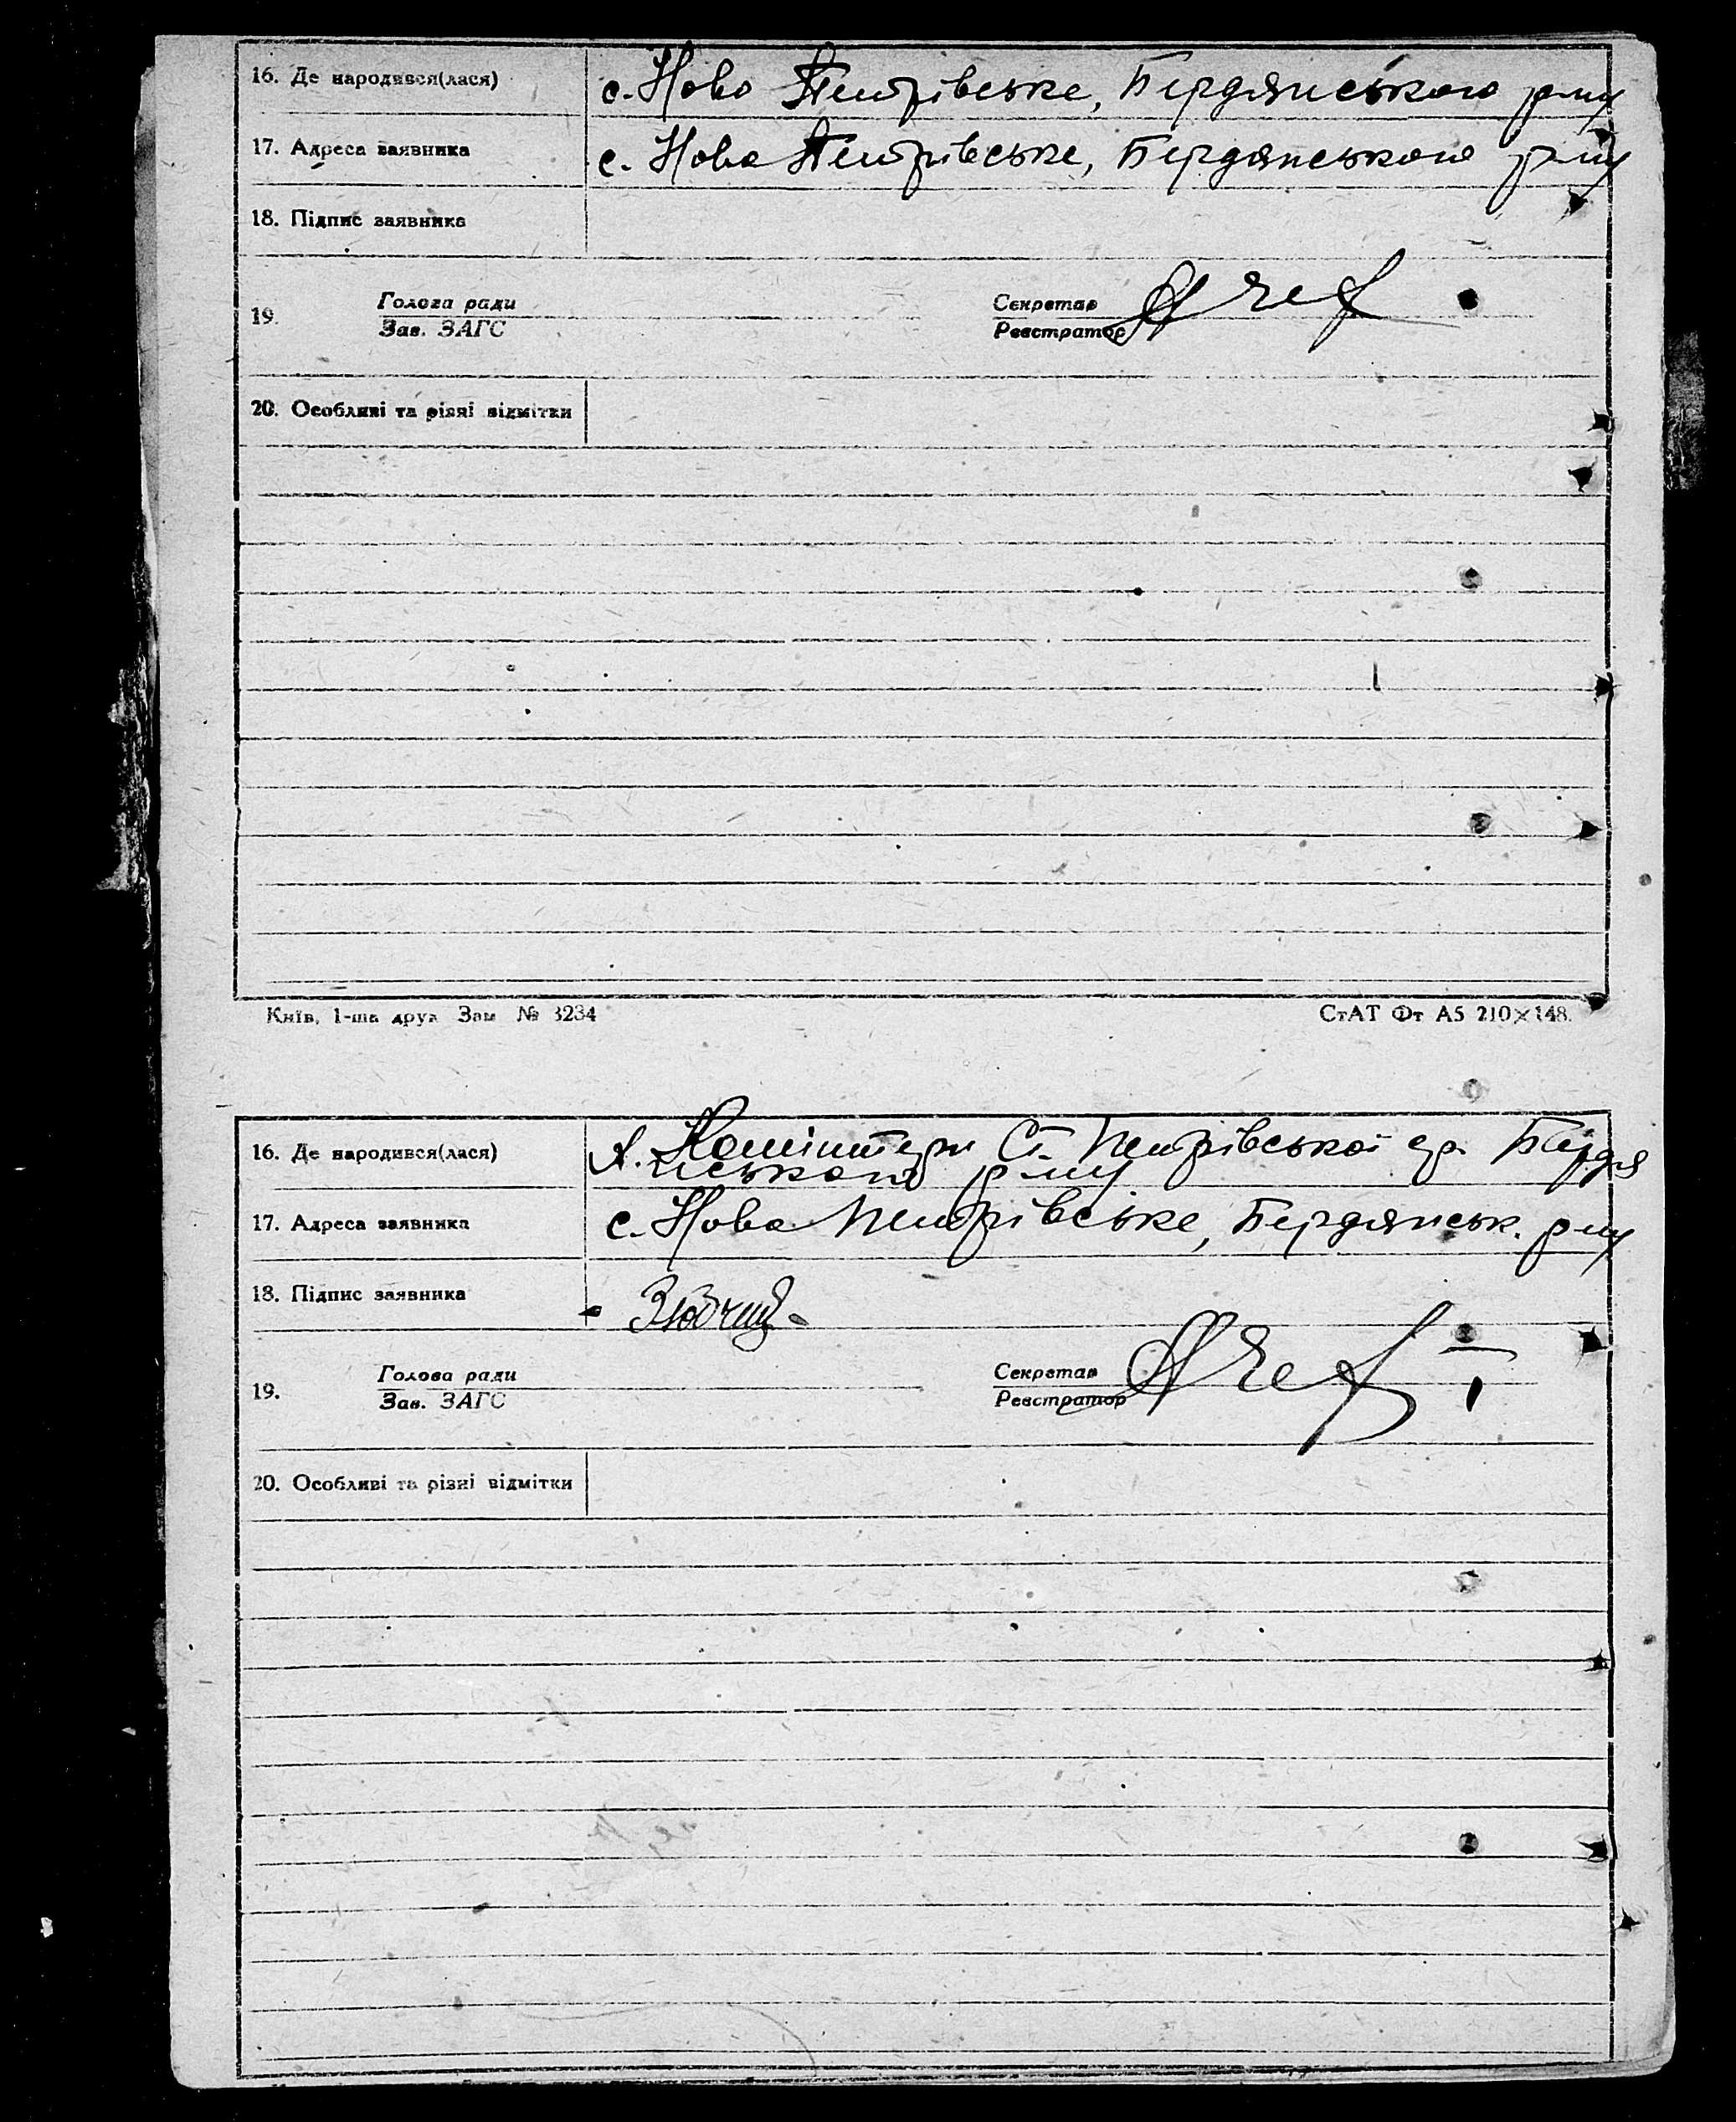 16. Де народився(лася) с. Ново Петрівське, Бердянського р-ну
17. Адреса заявника с. Ново Петрівське, Бердянського р-ну
18. Підпис заявника
Голова ради Секретар
19.
Зав. ЗАГС Реєстратор
20. Особливі та різні відмітки
Київ, 1-ша друк. Зам № 3234 СтАТ Фт А5 210×148.
16. Де народився(лася) х. Комінтерн Ст. Петрівської с.р. Бердя
нського р-ну
17. Адреса заявника с. Ново Петрівське, Бердянськ. р-ну
18. Підпис заявника
Голова ради Секретар
19.
Зав. ЗАГС Реєстратор
20. Особливі та різні відмітки